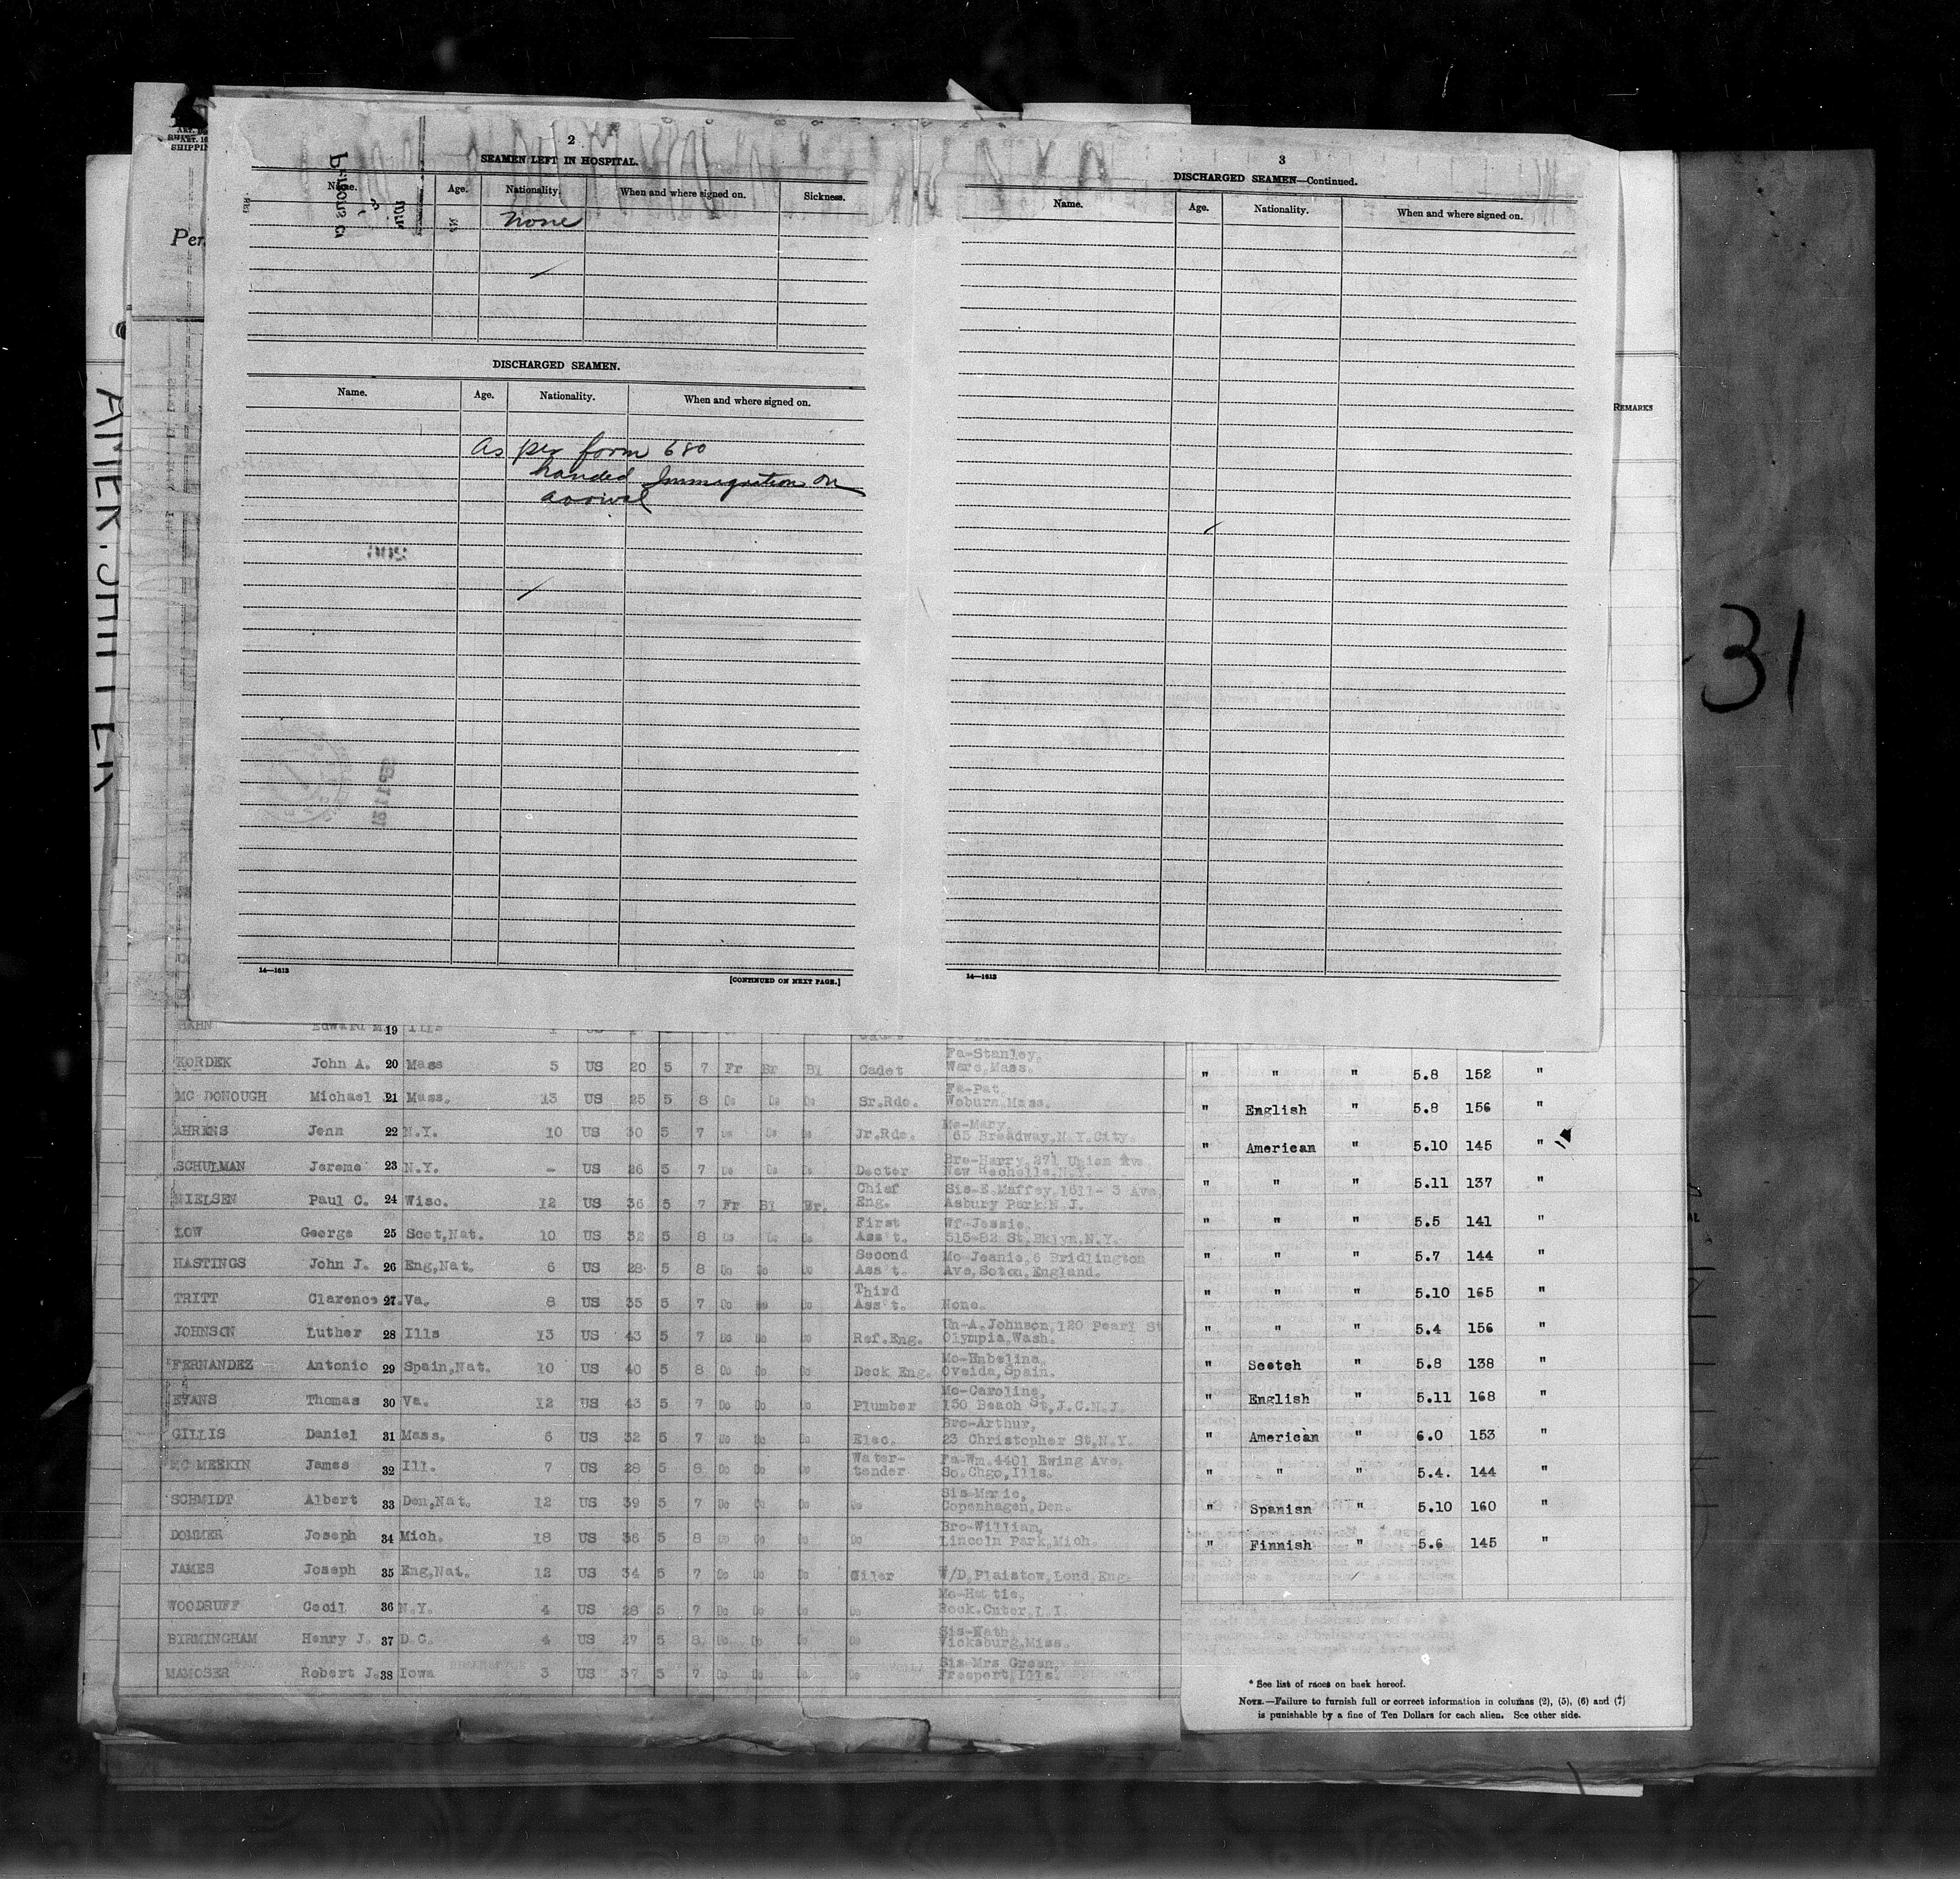 2
SEAMEN LEFT IN HOSPITAL.
Name. Age. Nationality. When and where signed on. Sickness.
None
DISCHARGED SEAMEN.
Name. Age. Nationality. When and where signed on.
As per form 680
handed Immigration on
arrival
14—1613
[CONTINUED ON NEXT PAGE.]
3
DISCHARGED SEAMEN—Continued.
Name. Age. Nationality. When and where signed on.
14—1613
SHIPPIN
Per
REMARKS
31
Edward M. 19 Ills
KORDEK John A. 20 Mass 5 US 20 5 7 Fr Br Bl Cadet Fa-Stanley, Ware, Mass.
MC DONOUGH Michael 21 Mass. 13 US 25 5 8 Do Do Do Sr.Rdo. Fa-Pat, Woburn, Mass.
AHRENS Jenn 22 N.Y. 10 US 30 5 7 Do Do Do Jr.Rdo. Mo-Mary, 65 Broadway, N.Y. City.
SCHULMAN Jerome 23 N.Y. - US 26 5 7 Do Do Do Doctor Bro-Harry, 271 Union Ave New Rochelle, N.Y.
NIELSEN Paul C. 24 Wisc. 12 US 36 5 7 Fr Bl Br. Chief Eng. Sis-E. Maffey, 1611- 3 Ave, Asbury Park N.J.
LOW George 25 Scot, Nat. 10 US 32 5 8 Do Do Do First Ass't. Wf-Jessie, 515-82 St. Bklyn, N.Y.
HASTINGS John J. 26 Eng, Nat. 6 US 28 5 8 Do Do Do Second Ass't. Mo Jeanie, 6 Bridlington Ave, Soton, England.
TRITT Clarence 27 Va. 8 US 35 5 7 Do Do Do Third Ass't. None.
JOHNSON Luther 28 Ills 13 US 43 5 7 Do Do Do Ref. Eng. Un-A. Johnson, 120 Pearl St Olympia, Wash.
FERNANDEZ Antonio 29 Spain, Nat. 10 US 40 5 8 Do Do Do Deck Eng. Mo-Enbelina, Oveida, Spain.
EVANS Thomas 30 Va. 12 US 43 5 7 Do Do Do Plumber Mo-Caroline, 150 Beach St, J.C.N.J.
GILLIS Daniel 31 Mass. 6 US 32 5 7 Do Do Do Elec. Bro-Arthur, 23 Christopher St, N.Y.
MC MEEKIN James 32 Ill. 7 US 28 5 8 Do Do Do Water-tender Fa-Wm. 4401 Ewing Ave. So. Chgo, Ills.
SCHMIDT Albert 33 Den, Nat. 12 US 39 5 7 Do Do Do Do Sis-Marie, Copenhagen, Den.
DOMMER Joseph 34 Mich. 18 US 36 5 8 Do Do Do Do Bro-William, Lincoln Park, Mich.
JAMES Joseph 35 Eng, Nat. 12 US 34 5 7 Do Do Do Oiler W/D, Plaistow, Lond, Eng.
WOODRUFF Cecil 36 N.Y. 4 US 28 5 7 Do Do Do Do Mo-Hattie, Rock. Cnter, L.I.
BIRMINGHAM Henry J. 37 D C. 4 US 27 5 8 Do Do Do Do Sis-Kath Vicksburg, Miss.
MAMOSER Robert J. 38 Iowa 3 US 37 5 7 Do Do Do Do Sis Mrs Green, Freeport, Ills.
" " " 5.8 152 "
" English " 5.8 156 "
" American " 5.10 145 "
" " " 5.11 137 "
" " " 5.5 141 "
" " " 5.7 144 "
" " " 5.10 165 "
" " " 5.4 156 "
" Scotch " 5.8 138 "
" English " 5.11 168 "
" American " 6.0 153 "
" " " 5.4. 144 "
" Spanish " 5.10 160 "
" Finnish " 5.6 145 "
* See list of races on back hereof.
NOTE.—Failure to furnish full or correct information in columns (2), (5), (6) and (7)
is punishable by a fine of Ten Dollars for each alien. See other side.